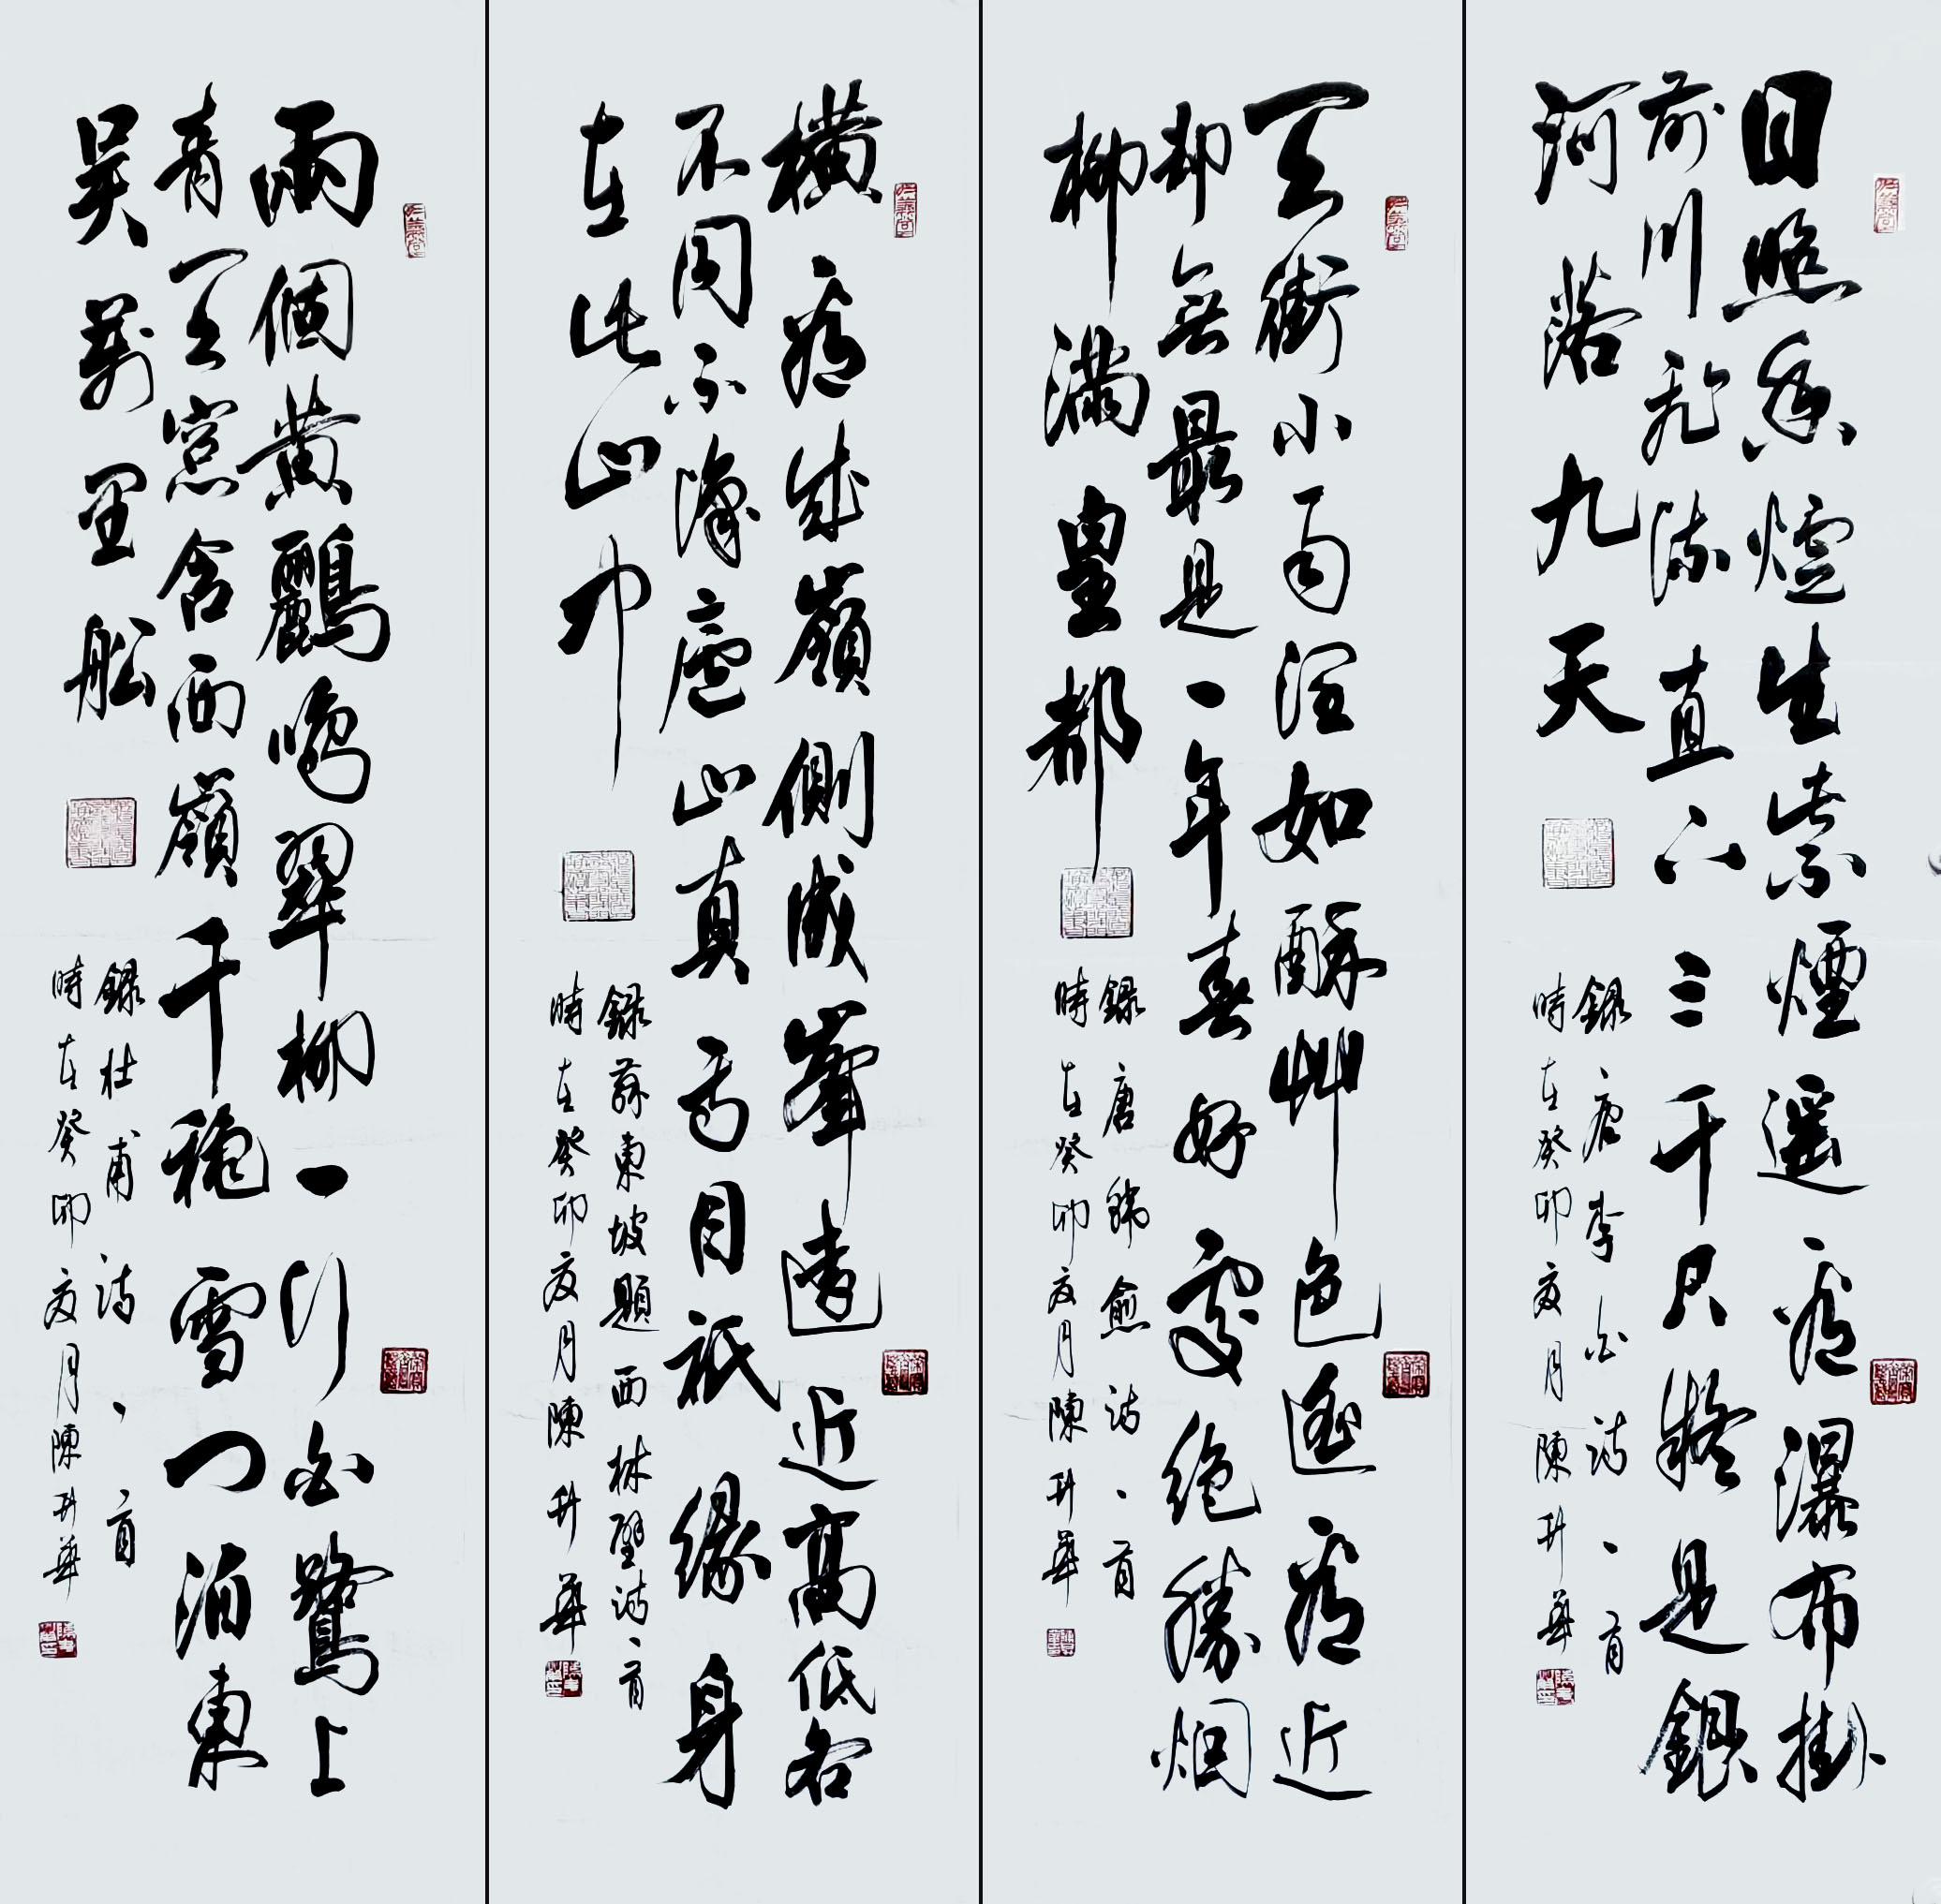 日照香爐生紫煙遙看瀑布掛
前川飛流直下三千尺疑是銀
河落九天
錄唐李白詩一首
時在癸卯夏月陳升華
天街小雨潤如酥艸色遙看近
却無最是一年春好處絕勝烟
柳滿皇都
錄唐韓愈詩一首
時在癸卯夏月陳升華
橫看成嶺側成峯遠近高低各
不同不識廬山真面目祇緣身
在此山中
錄蘇東坡題西林壁詩一首
時在癸卯夏月陳升華
兩個黃鸝鳴翠柳一行白鷺上
青天窓含西嶺千穐雪門泊東
吳萬里船
錄杜甫詩一首
時在癸卯夏月陳升華